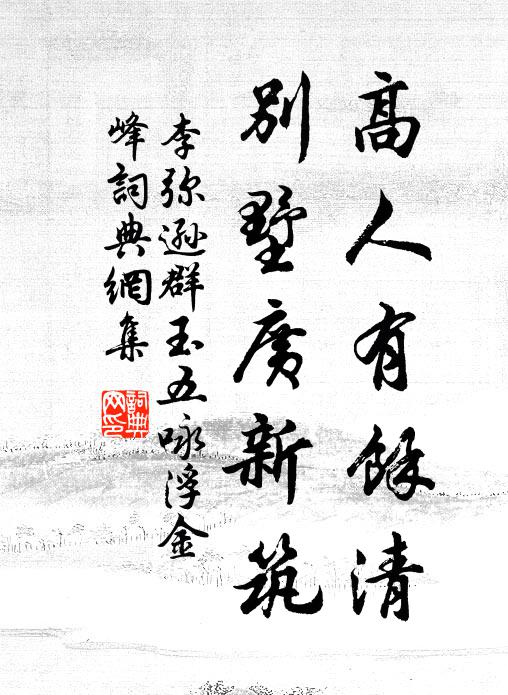 高人有餘清
別墅廣新筑
李弥遜群玉五咏浮金
峰詞典網集
詞典網印